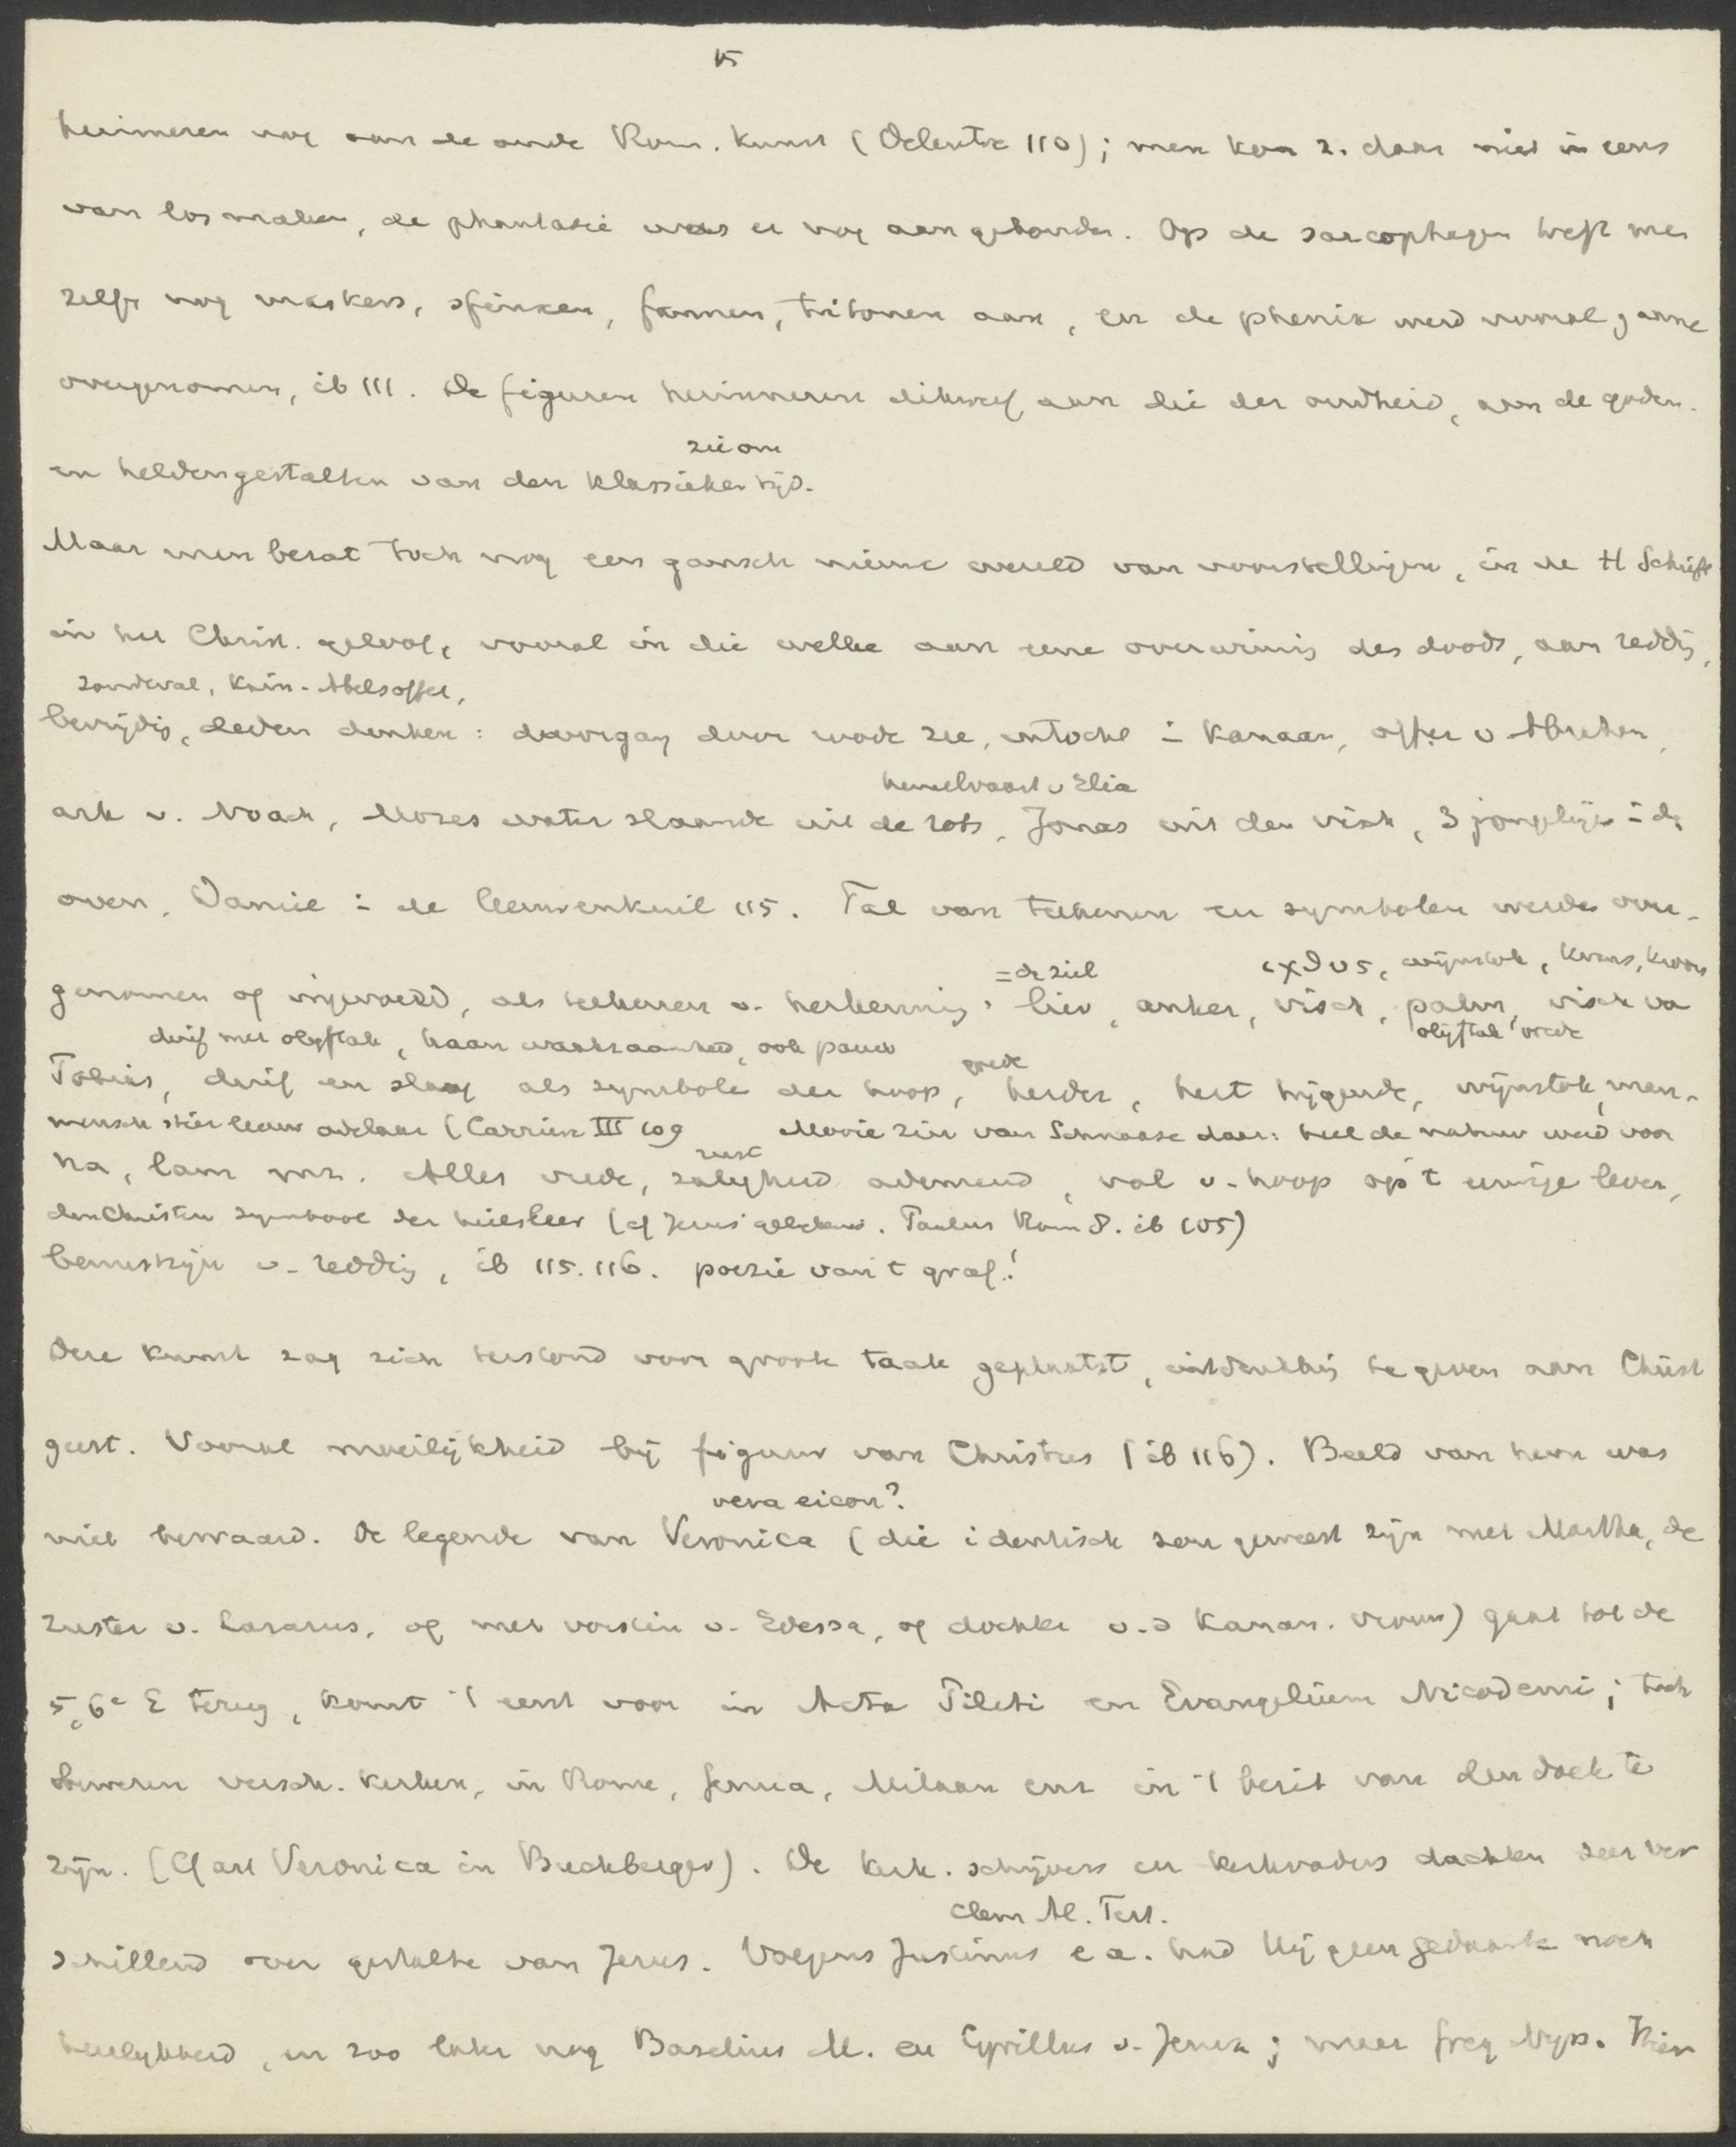 15
herinneren nog aan de oude Rom. kunst (Delentre 110); men kon z. daar niet in eens
van losmaken, de phantasie was er nog aan gebonden. Op de sarcophagen treft men
zelfs nog maskers, sfinxen, faunen, tritonen aan, en de phenix werd vooral gaarne
overgenomen, ib 111. De figuren herinneren dikwijls aan die der oudheid, aan de goden-
zie om
en heldengestalten van den klassieken tijd.
Maar men bezat toch nog een gansch nieuwe wereld van voorstellingen, in de H Schrift
in het Christ. geloof, vooral in die welke aan eene overwinnig des doods, aan reddg,
zondeval, Kain-Abelsoffer,
bevrijdig, deden denken: doorgang door roode zee, intocht i Kanaan, offer v Abraham,
hemelvaart v Elia
ark v. Noach, Mozes water slaande uit de rots, Jonas uit den visch, 3 jongelige i d
oven, Daniel i de leeuwenkuil 115. Tal van teekenen en symbolen werden over-
= de ziel ιχθυς, wijnstok, krans, kroon
genomen of ingevoerd, als teekenen v. herkennig, lier, anker, visch, palm, visch va
duif met olijftak, haan waakzaamheid, ook pauw olijftak vrede
Tobias, duif en slang als symbole der hoop, herder, hert hijgende, wijnstok, man-
goede
mensch stier leeuw adelaar (Carriere III 109 Mooie zin van Schnaase daar: heel de natuur werd voor
rust
na, lam enz. Alles vrede, zaligheid ademend, vol v. hoop op 't eeuwige leven,
den Christen symbool der heilsleer (cf Jezus' gelijkenis. Paulus Rom 8. ib 105)
bewustzijn v. reddig, ib 115.116. poezie van 't graf!
Deze kunst zag zich terstond voor groote taak geplaatst, uitdrukkig te geven aan Christ
geest. Vooral moeilijkheid bij figuur van Christus (ib 116). Beeld van hem was
vera eicon?
niet bewaard. De legende van Veronica (die identisch zou geweest zijn met Martha, de
zuster v. Lazarus, of met vorstin v. Edessa, of dochter v.d Kanan. vrouw) gaat tot de
5, 6e E terug, komt 't eerst voor in Acta Pilati en Evangelium Nicodemi; toch
beweren versch. kerken, in Rome, Genua, Milaan enz in 't bezit van den doek te
zijn. (Cf art Veronica in Buchberger). De kerk. schrijvers en kerkvaders dachten zeer ver
Clem Al. Tert.
schillend over gestalte van Jezus. Volgens Justinus e a. had Hij geen gedaante noch
heerlijkheid, en zoo later nog Basilius M. en Cyrillus v. Jeruz; maar Greg Nyss. Hier